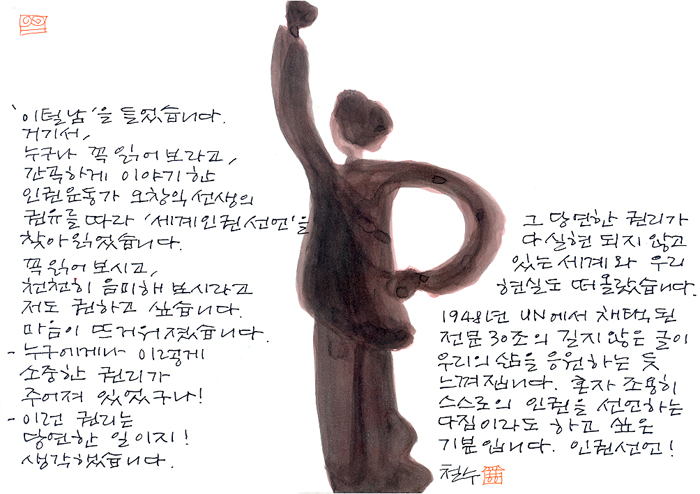 '이털남'을 들었습니다.
거기서,
누구나 꼭 읽어 보라고,
간곡하게 이야기한
인권운동가 오창익 선생의
권유를 따라 '세계인권선언'을
찾아 읽었습니다.
꼭 읽어 보시고,
천천히 음미해 보시라고
저도 권하고 싶습니다.
마음이 뜨거워졌습니다.
- 누구에게나 이렇게
소중한 권리가
주어져 있었구나!
- 이런 권리는
당연한 일이지!
생각했습니다.
그 당연한 권리가
다 실현 되지 않고
있는 세계와 우리
현실도 떠올랐습니다.
1948년 UN에서 채택된
전문 30조의 길지 않은 글이
우리의 삶을 응원하는 듯
느껴집니다. 혼자 조용히
스스로의 인권을 선언하는
다짐이라도 하고 싶은
기분입니다. 인권선언!
철수